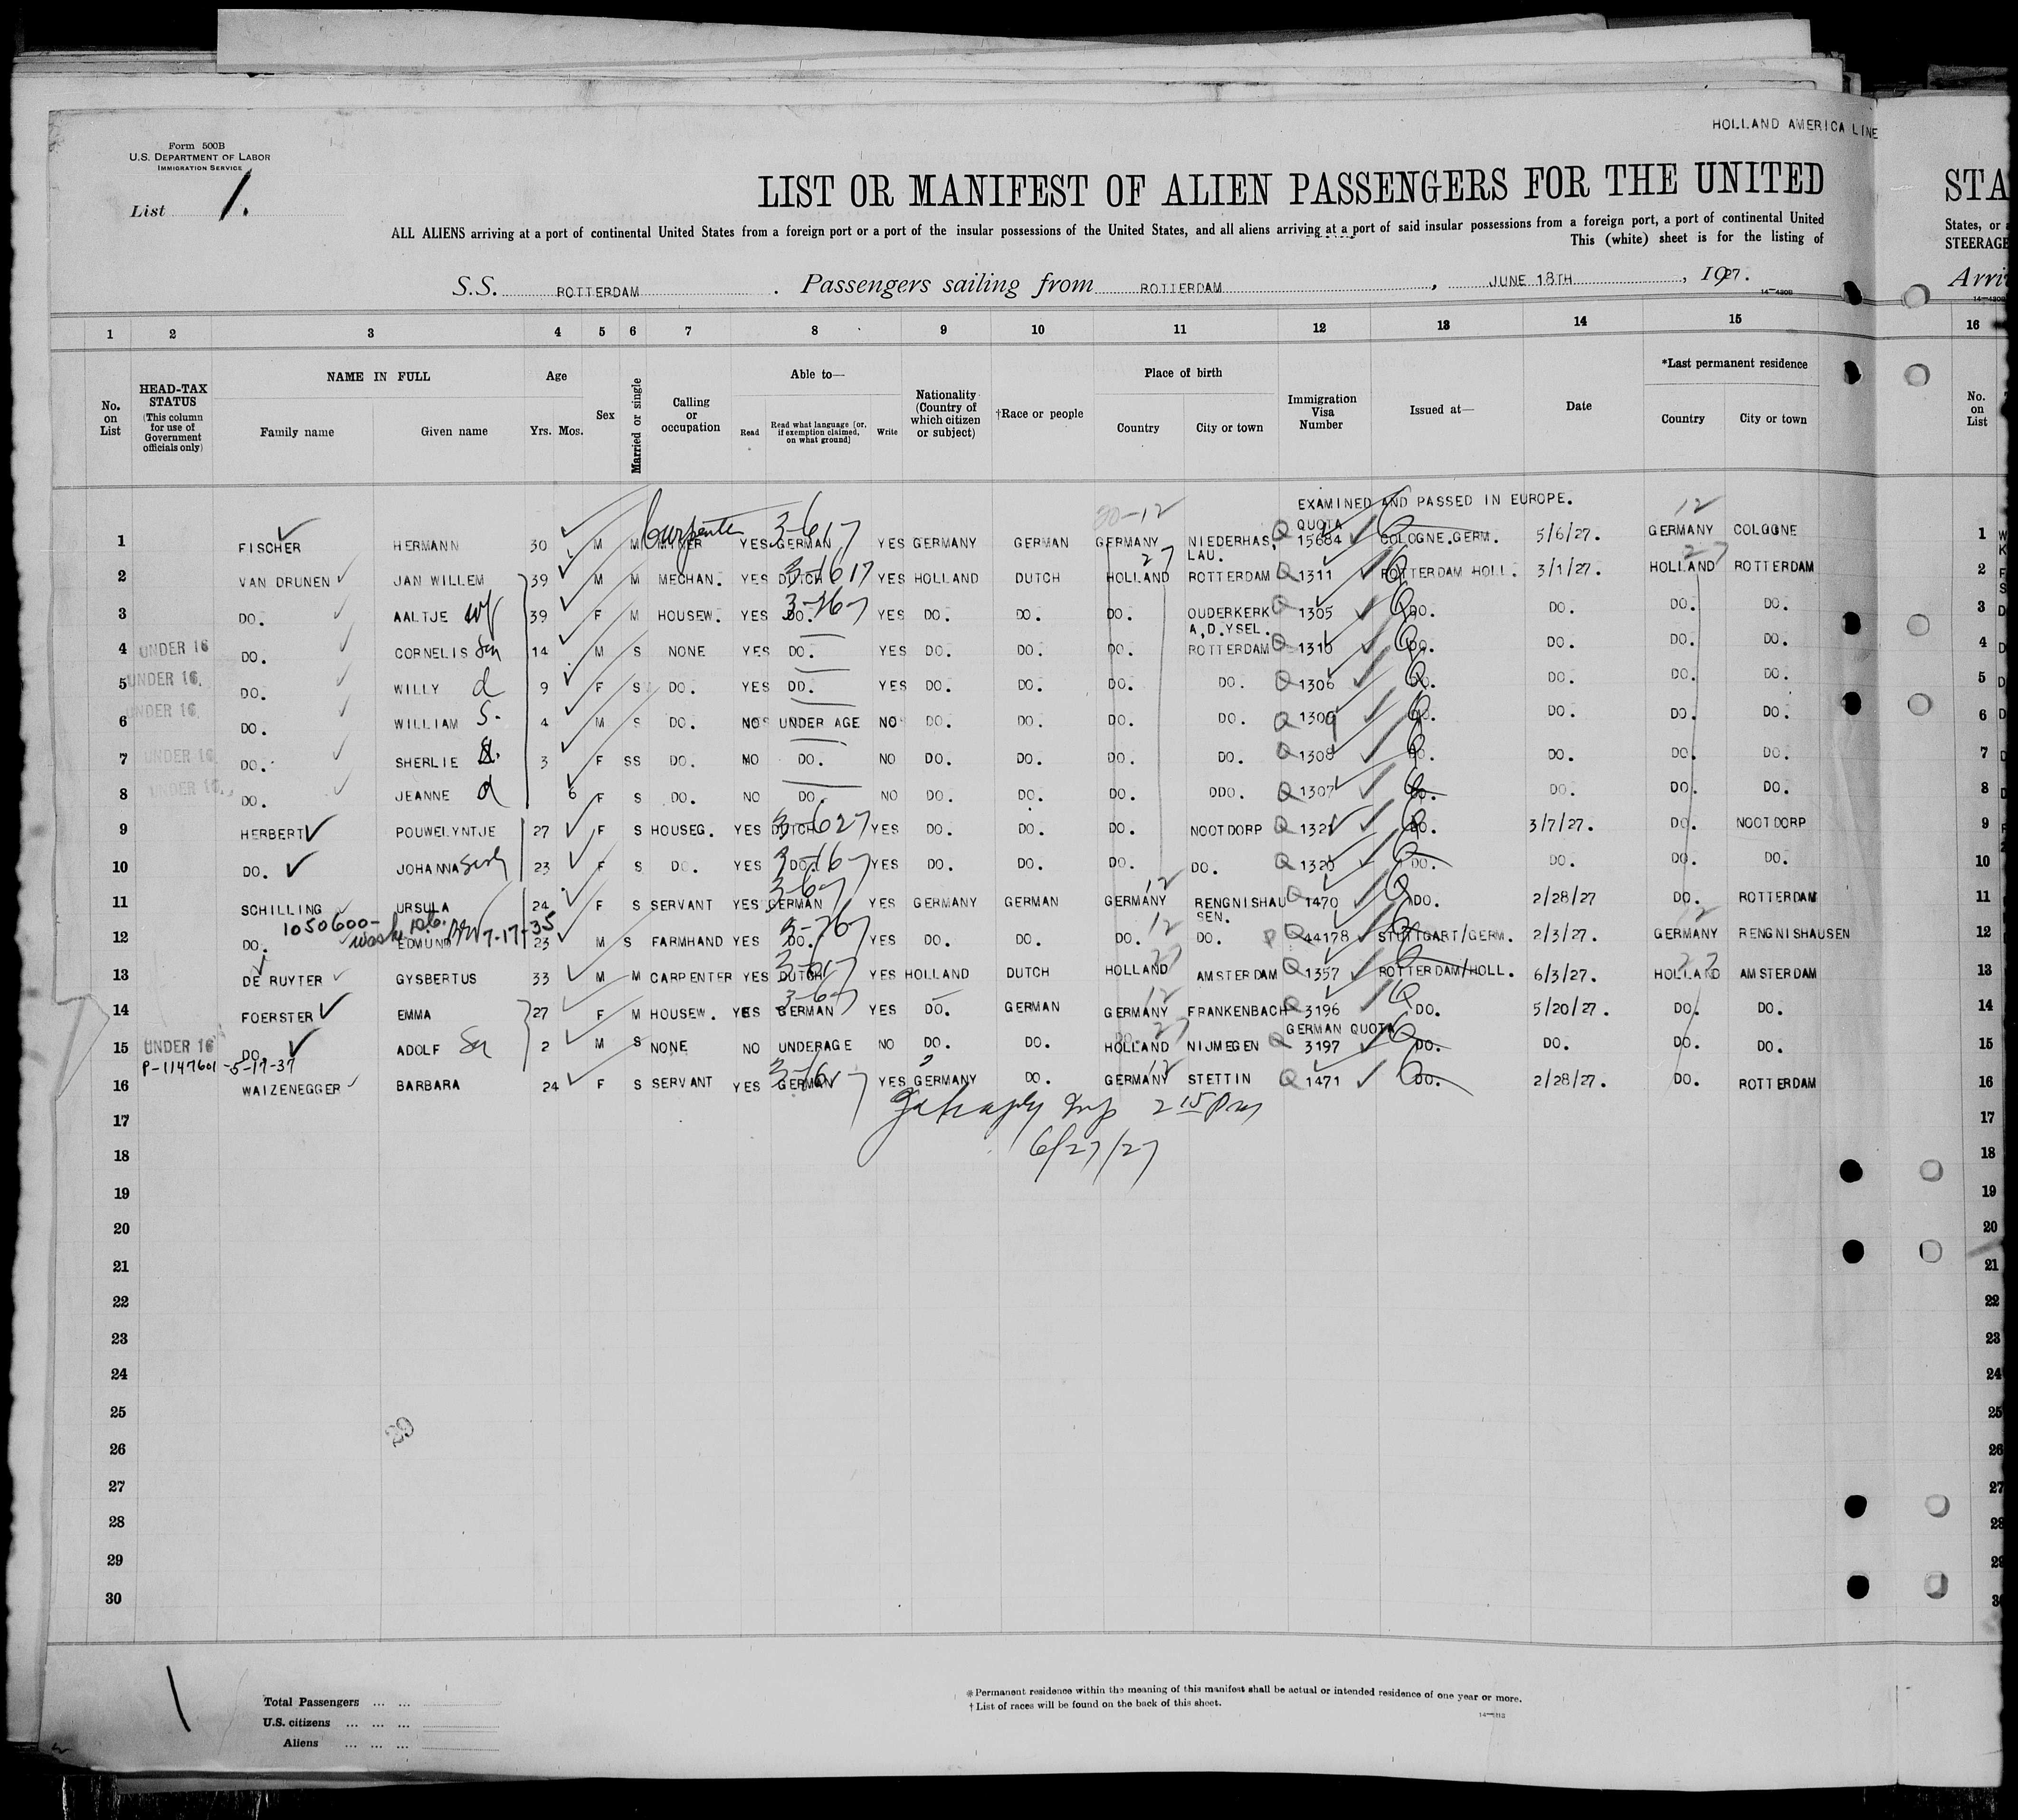 HOLLAND AMERICA LINE
Form 500B
U.S. DEPARTMENT OF LABOR
IMMIGRATION SERVICE
List 1.
LIST OR MANIFEST OF ALIEN PASSENGERS FOR THE UNITED
STA
ALL ALIENS arriving at a port of continental United States from a foreign port or a port of the insular possessions of the United States, and all aliens arriving at a port of said insular possessions from a foreign port, a port of continental United
States, or
This (white) sheet is for the listing of
STEERAGE
S.S. ROTTERDAM . Passengers sailing from ROTTERDAM , JUNE 18TH , 1927.
Arri
1 2 3 4 5 6 7 8 9 10 11 12 13 14 15 16
No. on List
HEAD-TAX STATUS (This column for use of Government officials only)
NAME IN FULL
Family name Given name
Age
Yrs. Mos.
Sex
Married or single
Calling or occupation
Able to—
Read Read what language [or, if exemption claimed, on what ground] Write
Nationality (Country of which citizen or subject)
†Race or people
Place of birth
Country City or town
Immigration Visa Number
Issued at—
Date
*Last permanent residence
Country City or town
No. on List
EXAMINED AND PASSED IN EUROPE.
QUOTA
1 FISCHER HERMANN 30 M M Carpenter YES GERMAN YES GERMANY GERMAN GERMANY NIEDERHAS, LAU. Q 15684 COLOGNE.GERM. 5/6/27. GERMANY COLOGNE 1
2 VAN DRUNEN JAN WILLEM 39 M M MECHAN. YES DUTCH YES HOLLAND DUTCH HOLLAND ROTTERDAM Q 1311 ROTTERDAM HOLL. 3/1/27. HOLLAND ROTTERDAM 2
3 DO. AALTJE wf 39 F M HOUSEW. YES DO. YES DO. DO. DO. OUDERKERK A,D.YSEL. Q 1305 DO. DO. DO. DO. 3
4 UNDER 16 DO. CORNELIS Son 14 M S NONE YES DO. YES DO. DO. DO. ROTTERDAM Q 1310 DO. DO. DO. DO. 4
5 UNDER 16. DO. WILLY d 9 F S DO. YES DO. YES DO. DO. DO. DO. Q 1306 DO. DO. DO. DO. 5
6 UNDER 16. DO. WILLIAM S. 4 M S DO. NO UNDER AGE NO DO. DO. DO. DO. Q 1309 DO. DO. DO. DO. 6
7 UNDER 16 DO. SHERLIE 3 F SS DO. NO DO. NO DO. DO. DO. DO. Q 1308 DO. DO. DO. DO. 7
8 UNDER 16. DO. JEANNE d 6 F S DO. NO DO. NO DO. DO. DO. DDO. Q 1307 DO. DO. DO. DO. 8
9 HERBERT POUWELYNTJE 27 F S HOUSEG. YES DUTCH YES DO. DO. DO. NOOTDORP Q 1321 DO. 3/7/27. DO. NOOTDORP 9
10 DO. JOHANNA 23 F S DO. YES DO. YES DO. DO. DO. DO. Q 1320 DO. DO. DO. DO. 10
11 SCHILLING URSULA 24 F S SERVANT YES GERMAN YES GERMANY GERMAN GERMANY RENGNISHAU SEN. Q 1470 DO. 2/28/27 DO. ROTTERDAM 11
1050600- 7-17-35
12 DO. EDMUND 23 M S FARMHAND YES DO. YES DO. DO. DO. DO. Q 44178 STUTTGART/GERM. 2/3/27. GERMANY RENGNISHAUSEN 12
13 DE RUYTER GYSBERTUS 33 M M CARPENTER YES DUTCH YES HOLLAND DUTCH HOLLAND AMSTERDAM Q 1357 ROTTERDAM/HOLL. 6/3/27. HOLLAND AMSTERDAM 13
14 FOERSTER EMMA 27 F M HOUSEW. YES GERMAN YES DO. GERMAN GERMANY FRANKENBACH Q 3196 DO. 5/20/27. DO. DO. 14
GERMAN QUOTA
15 UNDER 16 DO. ADOLF 2 M S NONE NO UNDERAGE NO DO. DO. HOLLAND NIJMEGEN Q 3197 DO. DO. DO. DO. 15
P-1147601-5-17-37
16 WAIZENEGGER BARBARA 24 F S SERVANT YES GERMAN YES GERMANY DO. GERMANY STETTIN Q 1471 DO. 2/28/27. DO. ROTTERDAM 16
17 2 15 Pm 17
18 6/27/27 18
19 19
20 20
21 21
22 22
23 23
24 24
25 25
26 26
27 27
28 28
29 29
30
Total Passengers ... ...
U.S. citizens ... ... ...
Aliens ... ... ...
*Permanent residence within the meaning of this manifest shall be actual or intended residence of one year or more.
†List of races will be found on the back of this sheet.